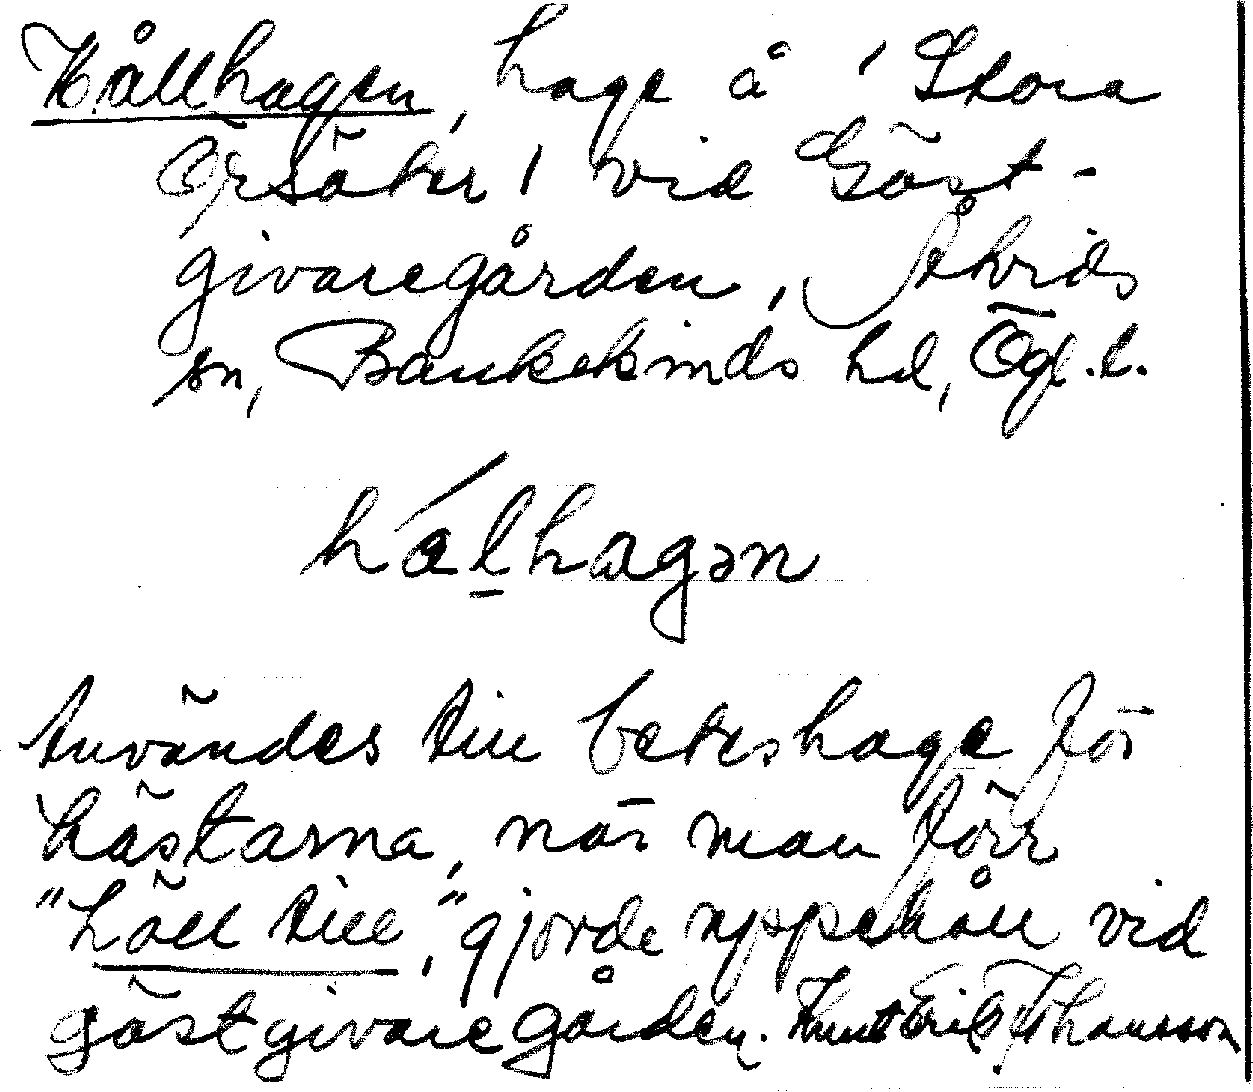 Hållhagen, hage å ' Stora
Örsäter' vid Gäst-
givaregården, Åtvids
sn, Bankekinds hd, Ögl. l.
hálhagən
Användes till beteshage för
hästarna, när man förr
"höll till", gjorde uppehåll vid
gästgivaregården. Knut Erik Johansson